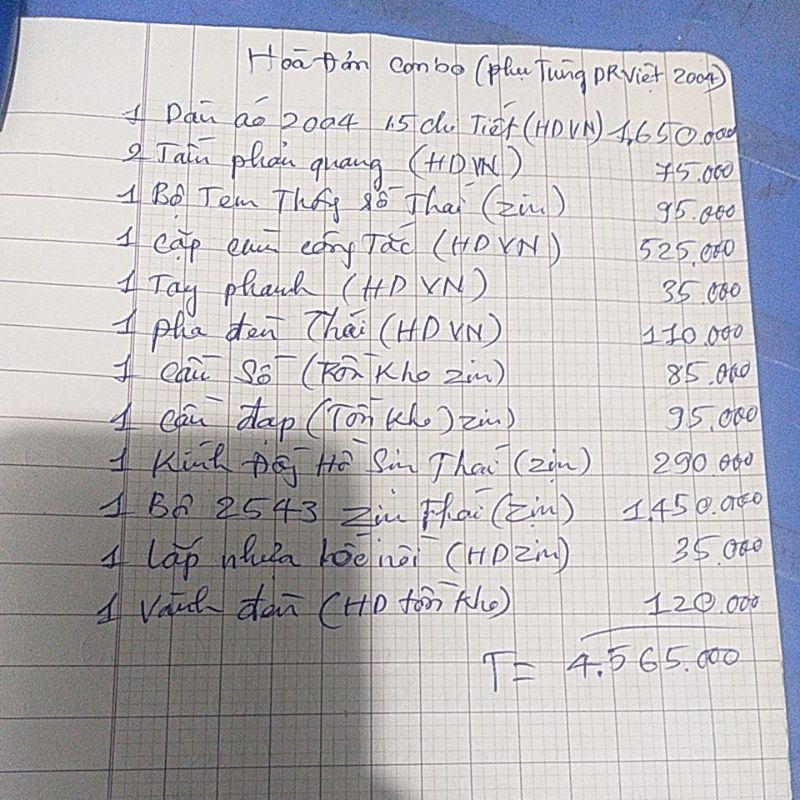 Hoá đơn combo (phụ Tùng DR Việt 2004)
1 Dàn áo 2004 15 chi Tiết (HDVN) 1,650.000
2 Tấm phản quang (HDVN) 75.000
1 Bộ Tem Thông Số Thái (zin) 95.000
1 cặp cùm công Tắc (HDVN) 525,000
1 Tay phanh (HDVN) 35.000
1 pha đèn Thái (HDVN) 110.000
1 cần Số (Tồn Kho zin) 85.000
1 cần đạp (Tồn Kho) zin) 95.000
1 Kính Đồng Hồ Sin Thái (zin) 290 000
1 Bộ 2543 zin Thái (zin) 1,450.000
1 lắp nhựa nồi (HDzin) 35.000
1 Vành đèn (HD tồn kho) 120.000
T= 4.565.000